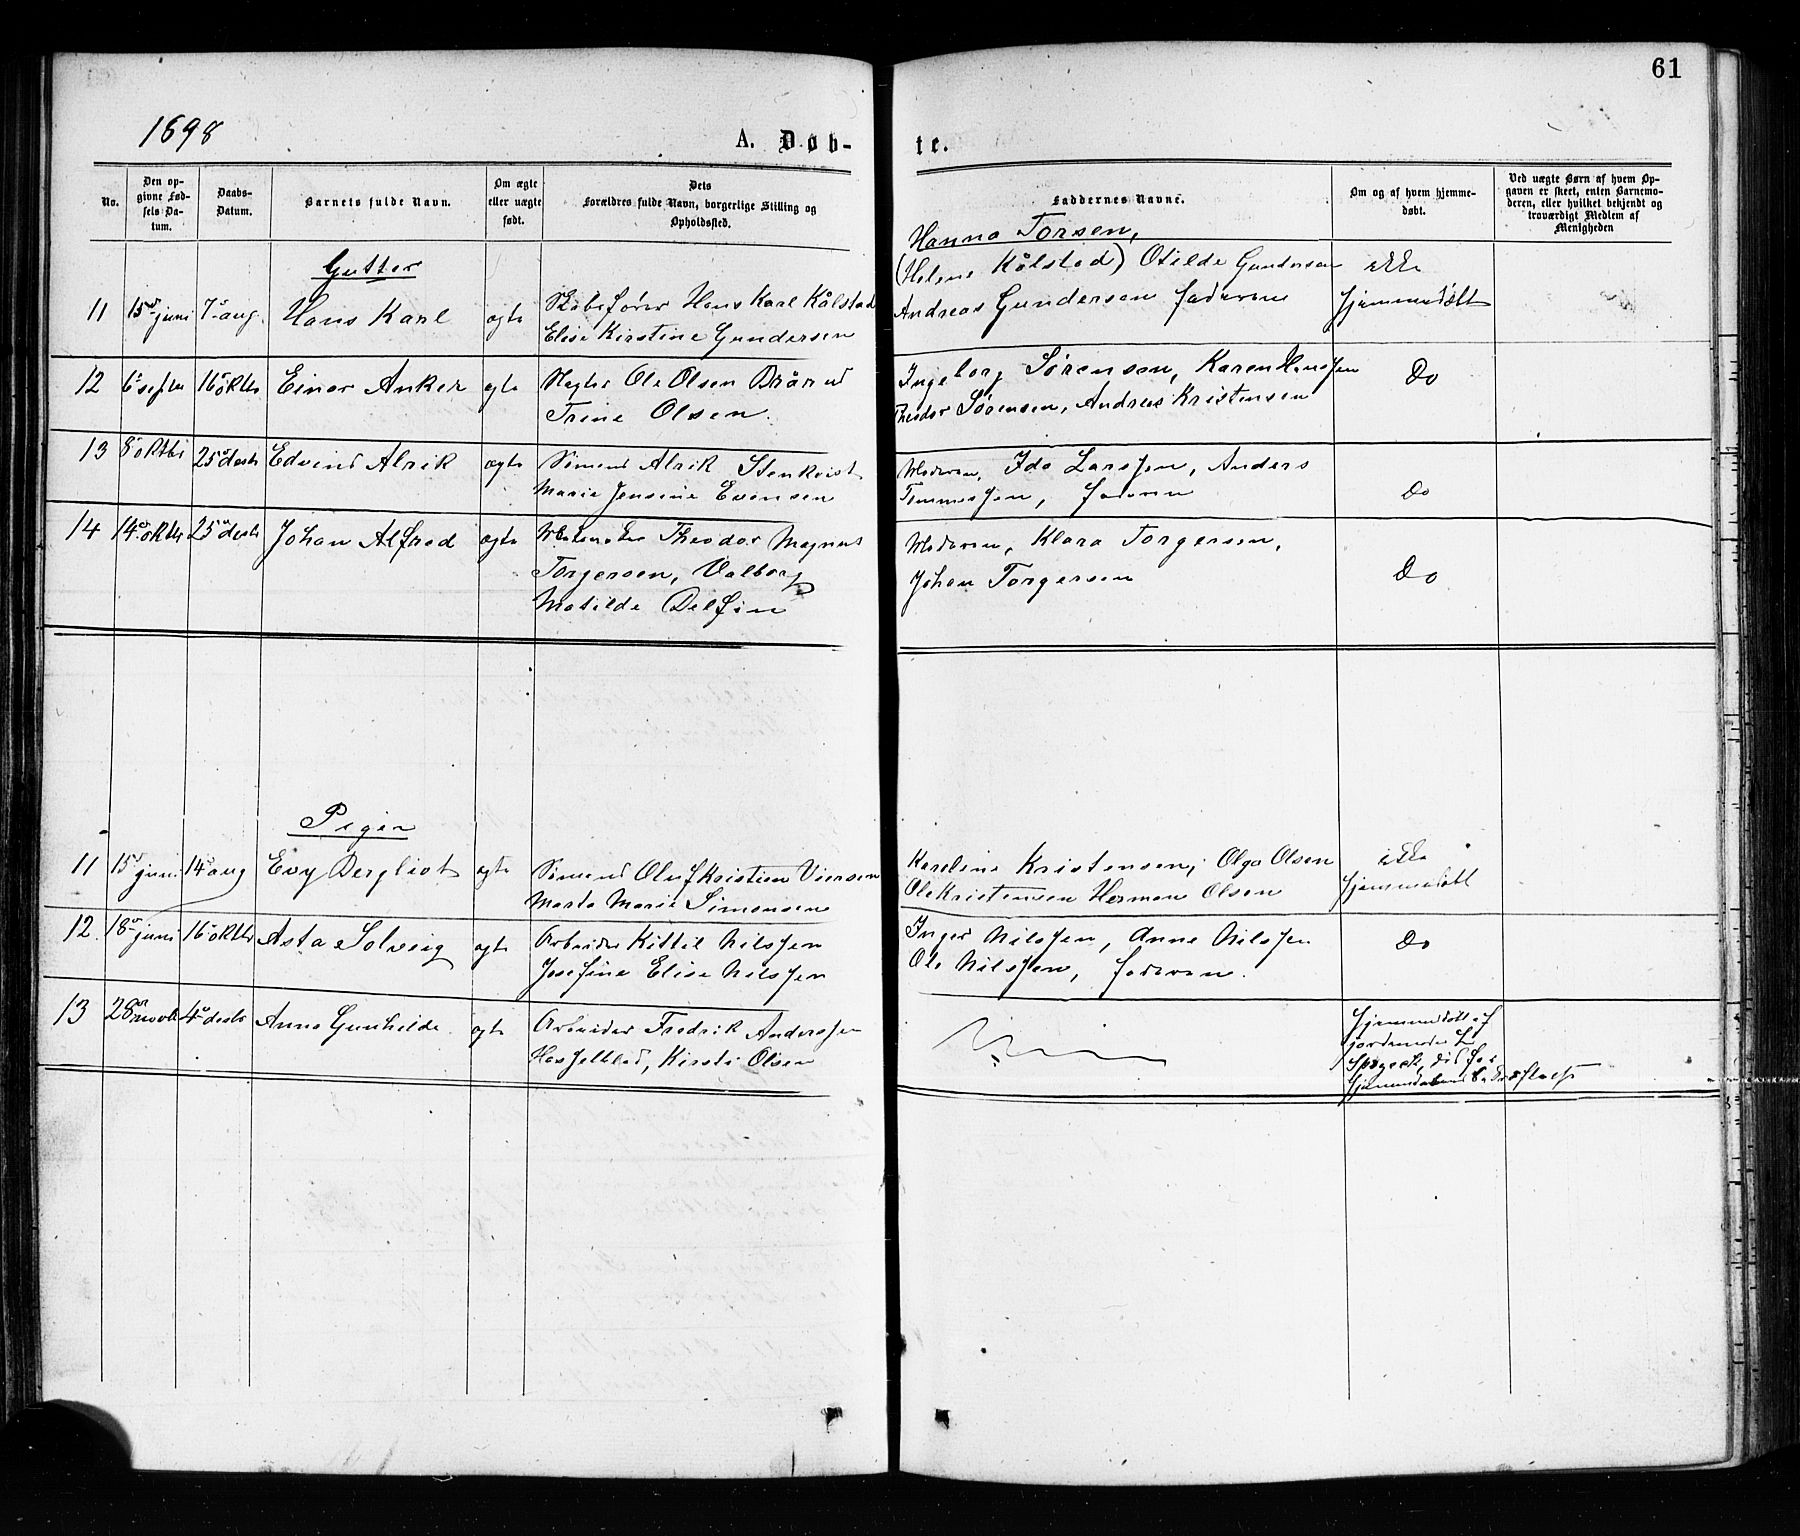 61
1898
A. Døb-
te.
No.
Den op-
givne Fød-
sels Da-
tum.
Daabs-
Datum.
Barnets fulde Navn.
Om ægte
eller uægte
født.
Dets
Forældres fulde Navn, borgerlige Stilling og
Opholdssted.
Faddernes Navne.
Om og af hvem hjemme-
døbt.
Ved uægte Børn af hvem Op-
gaven er skeet, enten Barnemo-
deren, eller hvilket bekjendt og
troværdigt Medlem af
Menigheden
Gutter
11 15de juni 7de aug. Hans Karl ægte
Skibsfører Hans Karl Kålstad
Elise Kirstine Gundersen
Hanna Torsen,
(Helene Kålstad) Otilde Gundersen
Andreas Gundersen faderen
ikke
hjemmedøbt
12 6te septbr 16de oktbr Einar Anker ægte
Ole Olsen
Trine Olsen.
Ingeborg Sørensen, Karen Hanssen
Theodor Sørensen, Andreas Kristensen
Do
13 8de oktbr 25de desbr Edvind Alrik ægte
Sømand Alrik Stenkvist
Marie Jensine Evensen
Moderen, Ida Larssen, Anders
faderen
Do
14 14de oktbr 25de desbr Johan Alfred ægte
Theodor Magnus
Torgersen, Valborg
Matilde Delfin
Moderen, Klara Torgersen,
Johan Torgersen
Do
Piger
11 15de juni 14de aug Evy Bergliot ægte
Sømand Oluf Kristian Iversen
Marta Marie Simonsen
Karoline Kristensen, Olga Olsen
Ole Kristensen Herman Olsen
ikke
hjemmedøbt
12. 18de juni 16de oktbr Asta Solveig ægte
Arbeider Kittil Nilssen
Josefine Elise Nilssen
Inger Nilssen, Anne Nilssen
Ole Nilssen, faderen.
Do
13 28de novbr 4de desbr Anna Gunhilde ægte
Arbeider Fredrik Anderssen
Hasselblad, Kirsti Olsen
Hjemmedøbt af
jordmoder